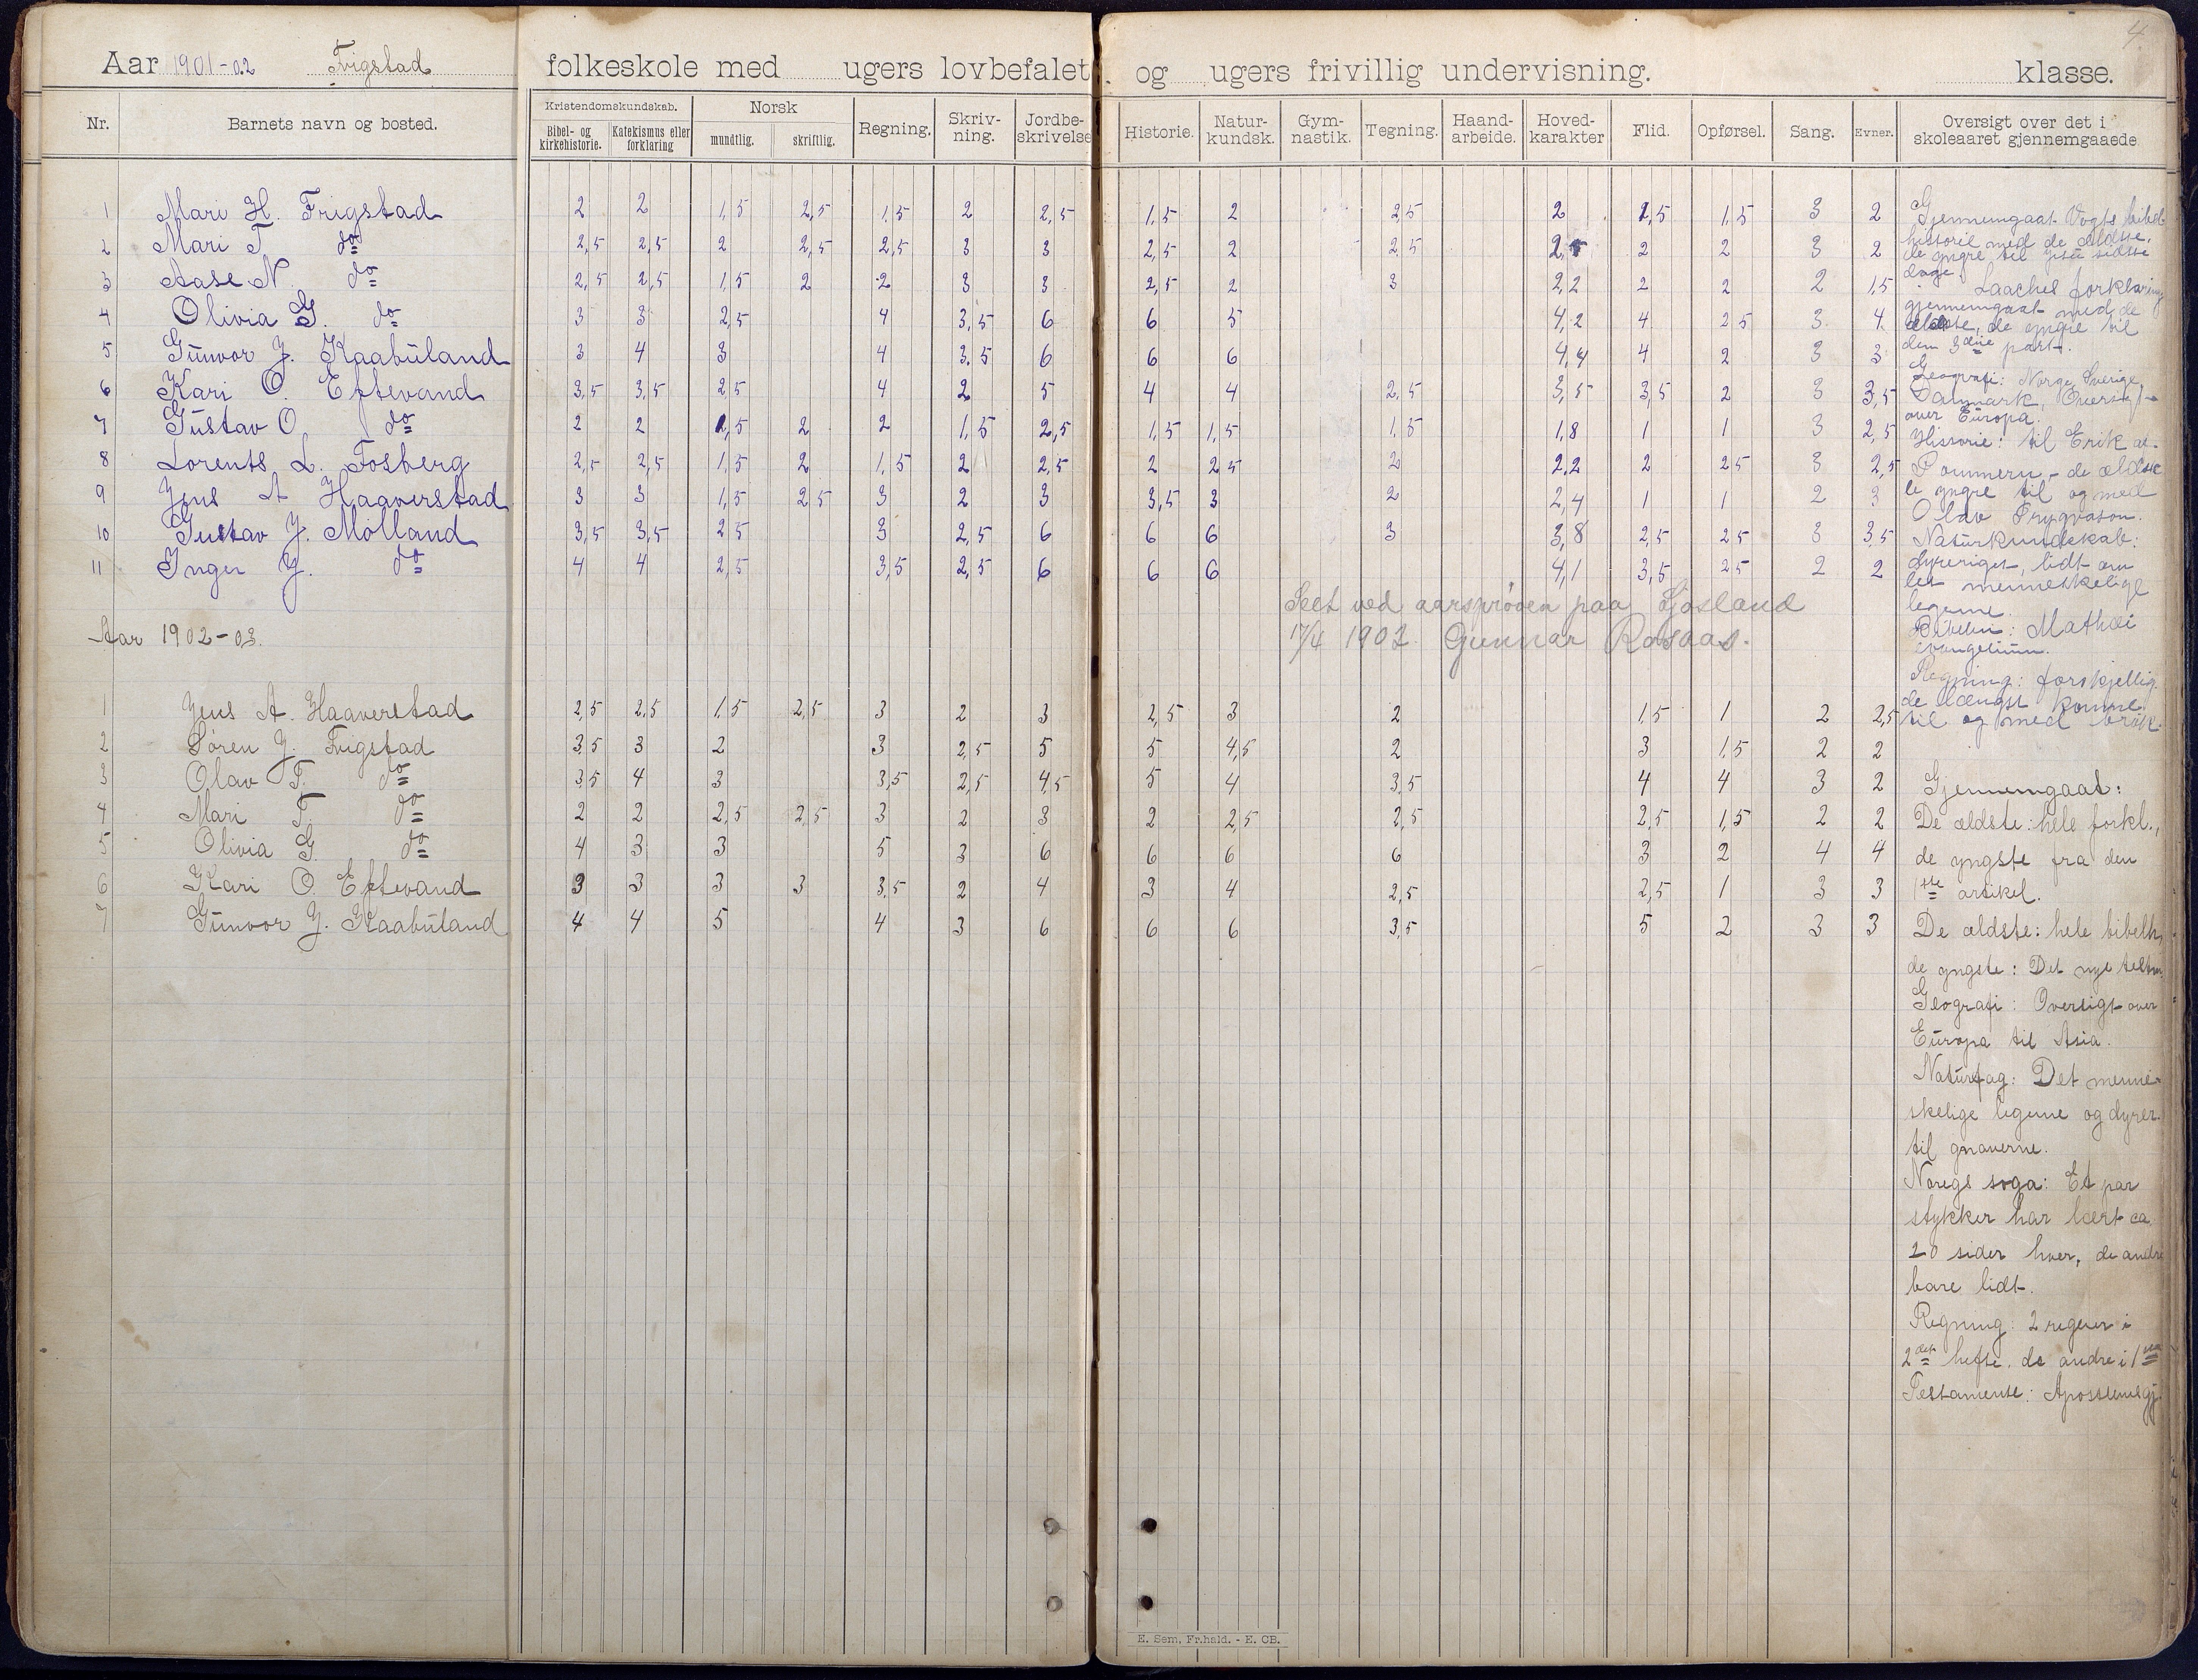 4.
Aar 1901-02 Frigstad folkeskole med ugers lovbefalet og ugers frivillig undervisning. klasse.
Nr. Barnets navn og bosted. Kristendomskundskab. Bibel- og kirkehistorie. Katekismus eller forklaring Norsk mundtlig. skriftlig. Regning. Skriv-ning. Jordbe-skrivelse Historie. Natur-kundsk. Gym-nastik. Tegning. Haand-arbeide. Hoved-karakter Flid. Opførsel. Sang. Evner. Oversigt over det i skoleaaret gjennemgaaede
1 Mari H. Frigstad 2 2 1,5 2,5 1,5 2 2,5 1,5 2 2,5 2 1,5 1,5 3 2
2 Mari T. do 2,5 2,5 2 2,5 2,5 3 3 2,5 2 2,5 2 2 3 2
3 Aase N. do 2,5 2,5 1,5 2 2 3 3 2,5 2 3 2,2 2 2 2 1,5
4 Olivia G. do 3 3 2,5 4 3,5 6 6 5 4,2 4 2,5 3 4
5 Gunvor J. Kaabuland 3 4 3 4 3,5 6 6 6 4,4 4 2 3 3
6 Kari O. Eptevand 3,5 3,5 2,5 4 2 5 4 4 2,5 3,5 3,5 2 3 3,5
7 Gustav O. do 2 2 1,5 2 2 1,5 2,5 1,5 1,5 1,5 1,8 1 1 3 2,5
8 Lorents L. Fosberg 2,5 2,5 1,5 2 1,5 2 2,5 2 2,5 2 2,2 2 2,5 3 2,5
9 Jens A Haaverstad 3 3 1,5 2,5 3 2 3 3,5 3 2 2,4 1 1 2 3
10 Gustav J. Mölland 3,5 3,5 2,5 3 2,5 6 6 6 3 3,8 2,5 2,5 3 3,5
11 Inger J. do 4 4 2,5 3,5 2,5 6 6 6 4,1 3,5 2,5 2 2
Seet ved aarsprøven paa Ljosland
17/4 1902 Gunnar Rosaas.
Gjennemgaat Vogts bibel-
historie med de ældste,
de yngre til sidste
dage. Laaches forklaring
gjennemgaat med de
ældste, de yngre til
den 3die part.
Geografi: Norge, Sverige,
Danmark, Oversigt
over Europa.
Historie: til Erik af
Pommern - de ældste
de yngre til og med
Olav Trygvason.
Naturkundskab:
dyreriget, lidt om
det menneskelige
legeme.
Bibelen: Mathæi
evangelium.
Regning: forskjellig.
de længst komne
til og med brøk.
Aar 1902-03.
1 Jens A. Haaverstad 2,5 2,5 1,5 2,5 3 2 3 2,5 3 2 1,5 1 2 2,5
2 Søren J. Frigstad 3,5 3 2 3 2,5 5 5 4,5 2 3 1,5 2 2
3 Olav T. do 3,5 4 3 3,5 2,5 4,5 5 4 3,5 4 4 3 2
4 Mari T. do 2 2 2,5 2,5 3 2 3 2 2,5 2,5 2,5 1,5 2 2
5 Olivia G. do 4 3 3 5 3 6 6 6 6 3 2 4 4
6 Kari O. Eptevand 3 3 3 3 3,5 2 4 3 4 2,5 2,5 1 3 3
7 Gunvor J. Kaabuland 4 4 5 4 3 6 6 6 3,5 5 2 3 3
Gjennemgaat:
De ældste: hele forkl.,
de yngste fra den
1ste artikel.
De ældste: hele bibelh,
de yngste: Det nye testm.
Geografi: Oversigt over
Europa til Asia.
Naturfag: Det menne-
skelige legeme og dyrer.
til gnaverne.
Noregs soga: Et par
stykker har lært ca
20 sider hver, de andre
bare lidt.
Regning: 2 regner i
2det hefte, de andre i 1ste
Testamente: Apostlenesgj.
E. Sem, Fr.hald. - E. CB.